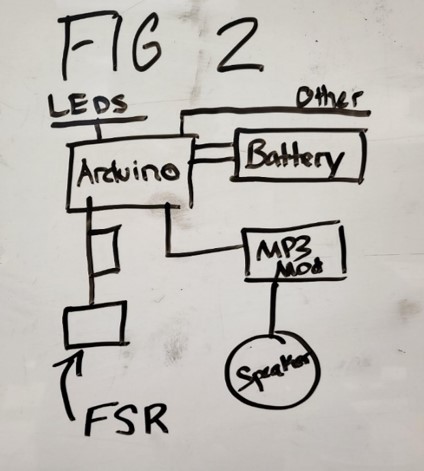 FIG 2
LEDS
Other
Arduino
Battery
MP3
Mod
Speaker
FSR